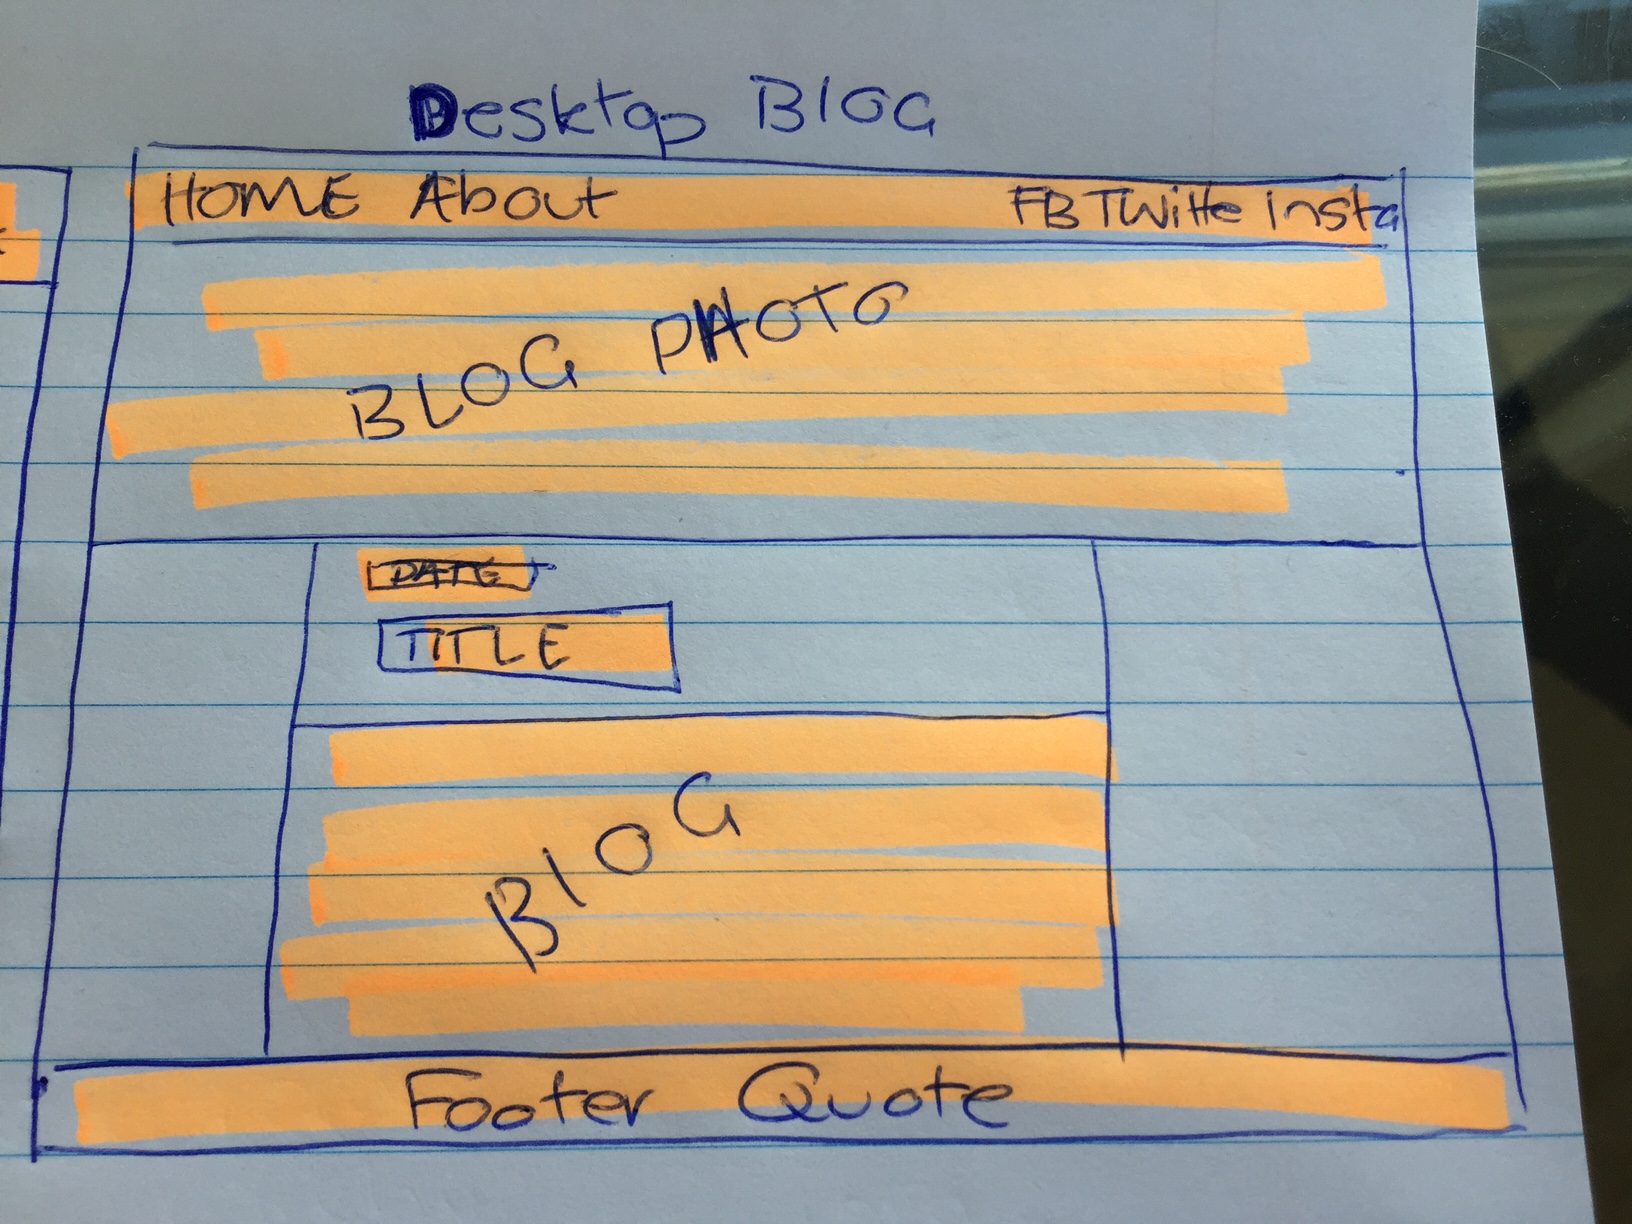 Desktop BlOG
HOME About FB TWitte insta
BLOG PHOTO
DATE
TITLE
BlOG
Footer Quote